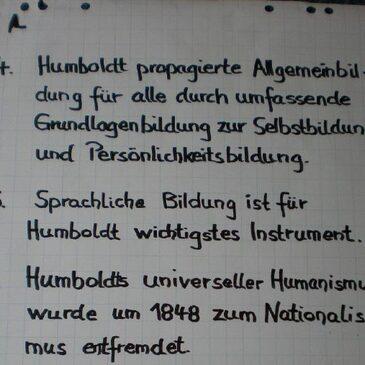 4. Humboldt propagierte Allgemeinbil-
dung für alle durch umfassende
Grundlagenbildung zur Selbstbildun
und Persönlichkeitsbildung.
Sprachliche Bildung ist für
Humboldt wichtigstes Instrument.
Humboldts universeller Humanismu
wurde um 1848 zum Nationalis
mus entfremdet.